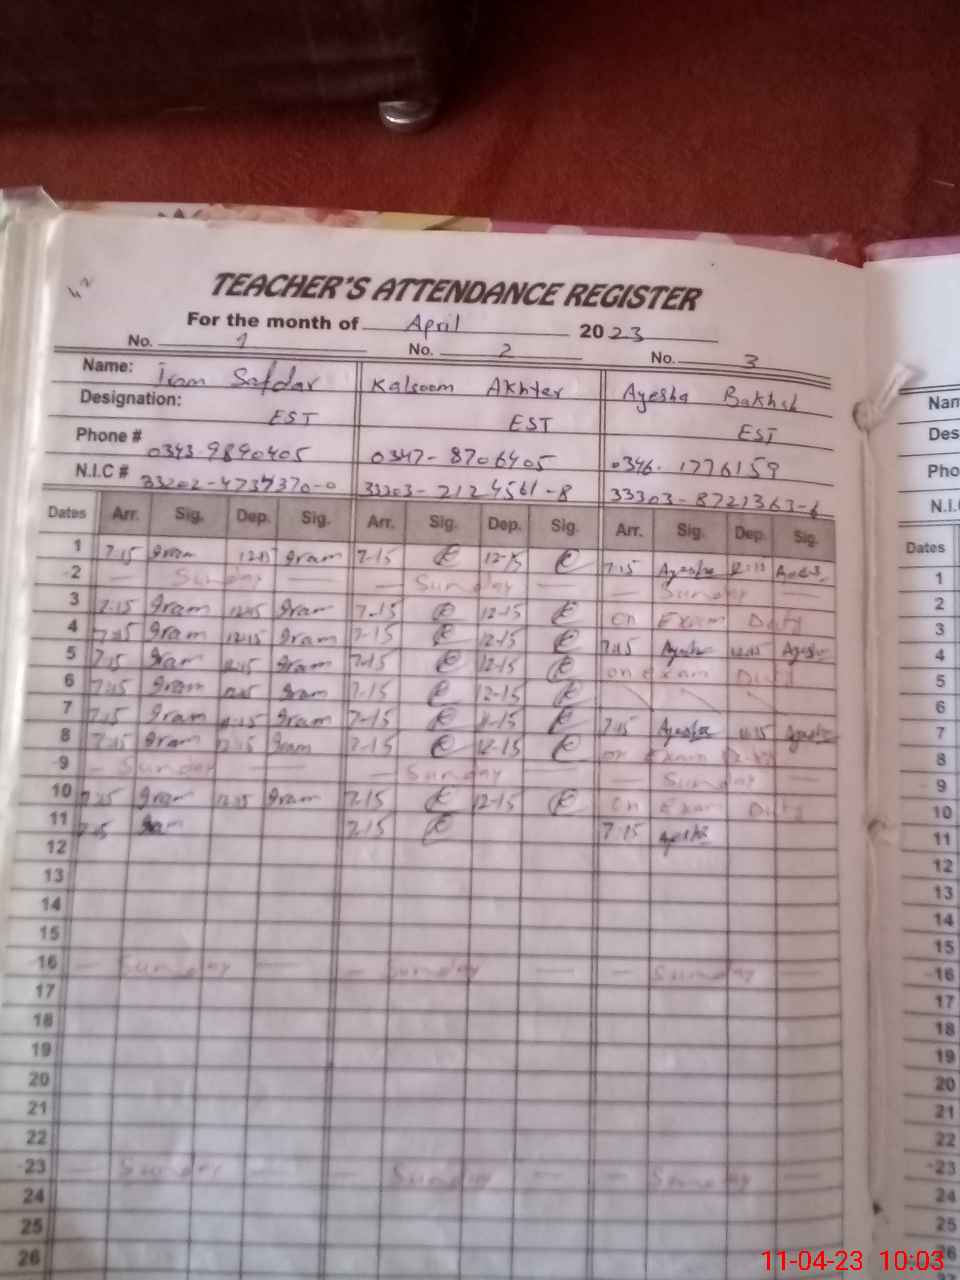 42
TEACHER'S ATTENDANCE REGISTER
For the month of April 2023
No. 1 No. 2 No. 3
Name: Iram Safdar Kalsoom Akhter Ayesha Bakhsh
Designation: EST EST EST
Phone # 0343-9890405 0347-8706405 0346-1776159
N.I.C # 33202-4737370-0 33303-2124561-8 33303-8721363-6
Dates Arr. Sig. Dep. Sig. Arr. Sig. Dep. Sig. Arr. Sig. Dep. Sig.
1 7.15 Iram 12.15 Iram 7-15 12-15 7.15 Ayesha 12.15
2 Sunday Sunday Sunday
3 7.15 Iram 12.15 Iram 7-15 12-15 on Exam Duty
4 7.15 Iram 12.15 Iram 7-15 12-15 7.15 Ayesha 12.15 Ayesha
5 7.15 Iram 12.15 Iram 7-15 12-15 on Exam Duty
6 7.15 Iram 12.15 Iram 7-15 12-15
7 7.15 Iram 11.15 Iram 7-15 11-15 7.15 Ayesha 11.15 Ayesha
8 7.15 Iram 12.15 Iram 7-15 12-15 on Exam Duty
9 Sunday Sunday Sunday
10 7.15 Iram 12.15 Iram 7-15 12-15 on Exam Duty
11 7.15 Iram 7-15 7.15 Ayesha
12
13
14
15
16 Sunday Sunday Sunday
17
18
19
20
21
22
23 Sunday Sunday Sunday
24
25
26
Nam
Des
Pho
N.I.
Dates
1
2
3
4
5
6
7
8
9
10
11
12
13
14
15
16
17
18
19
20
21
22
23
24
25
26
11-04-23 10:03